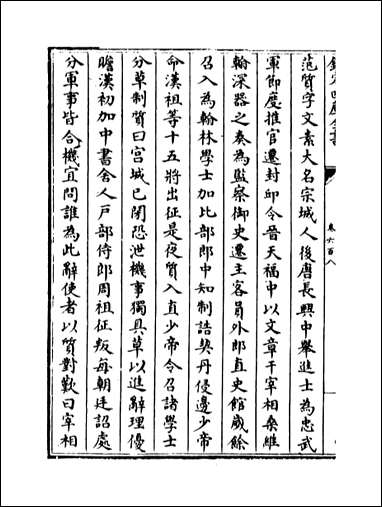 欽定四庫全書
卷六百八
范質字文素大名宗城人後唐長興中舉進士為忠武
軍節度推官遷封邱令晉天福中以文章干宰相桑維
翰深器之奏為監察御史遷主客員外郎直史館歲餘
召入為翰林學士加比部郎中知制誥契丹侵邊少帝
命漢祖等十五將出征是夜質入直少帝令召諸學士
分草制質曰宫城已閉恐泄機事獨具草以進辭理優
贍漢初加中書舍人户部侍郎周祖征叛每朝廷詔處
分軍事皆合機宜問誰為此辭使者以質對歎曰宰相